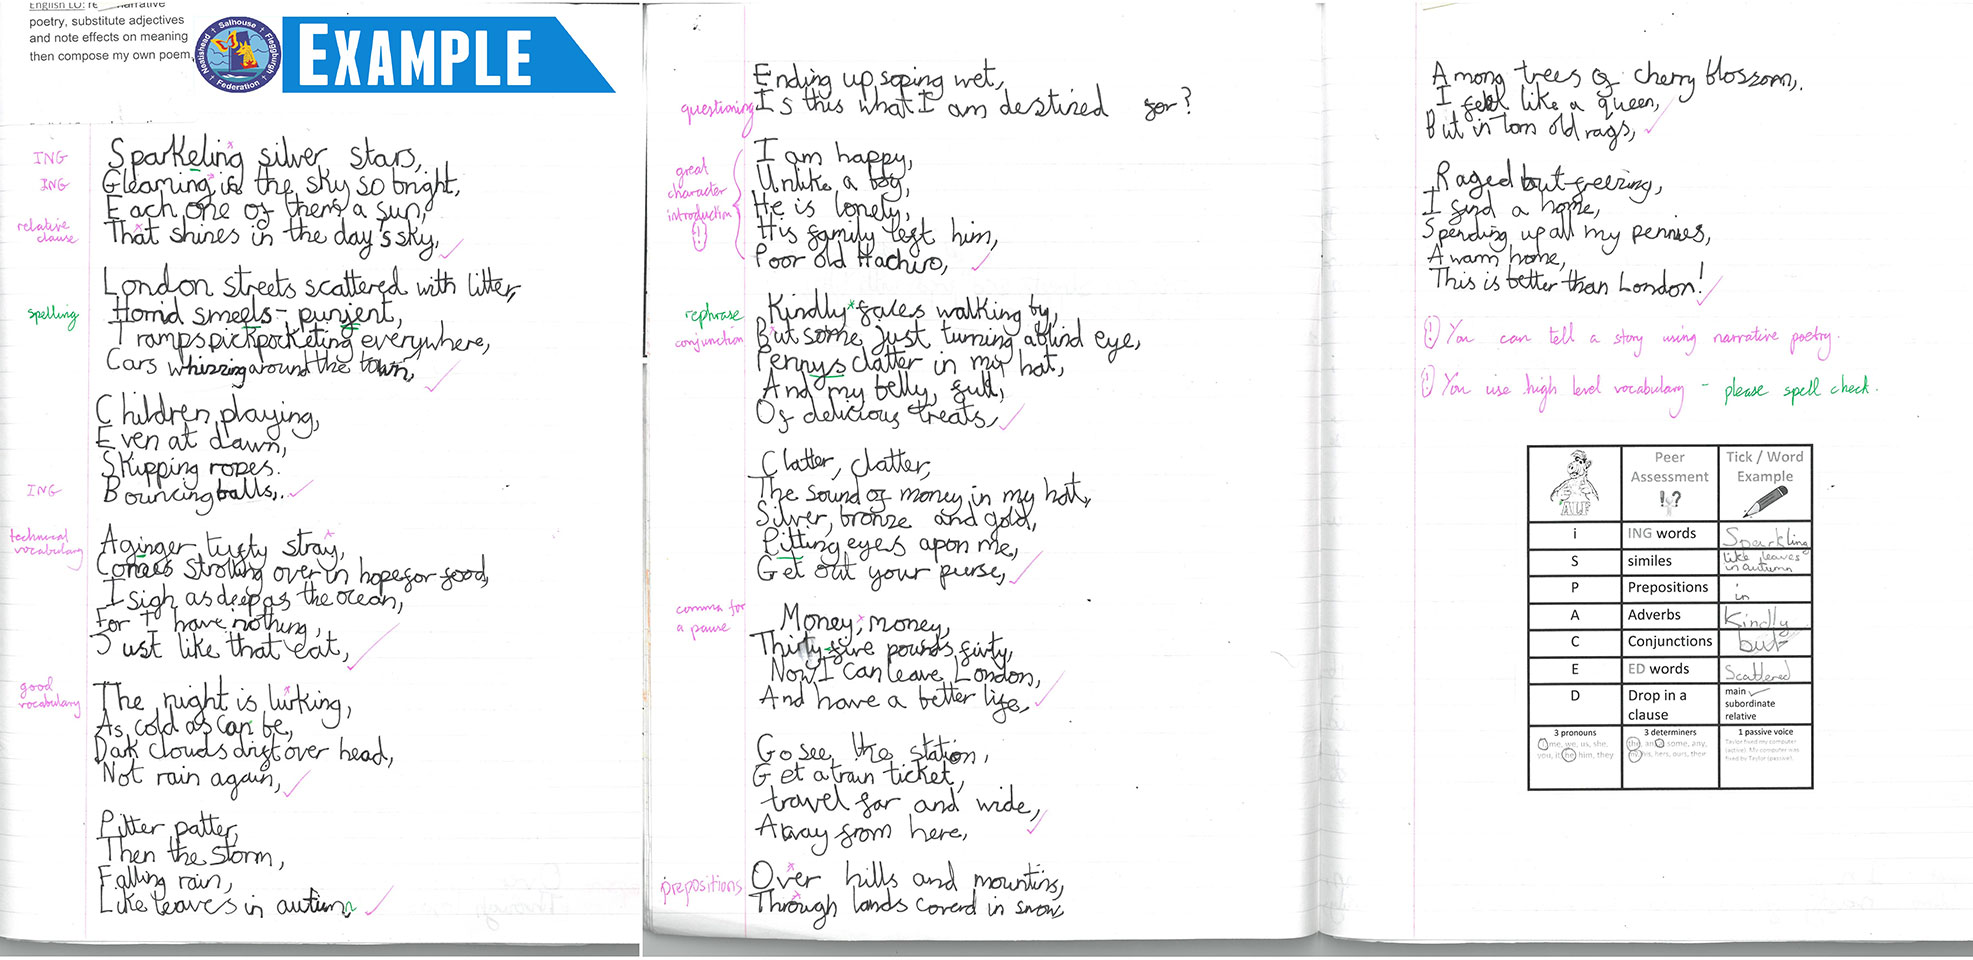 English LO: re narrative
poetry, substitute adjectives
and note effects on meaning
then compose my own poem,
Neatishead Salhouse Fleggburgh
Federation
EXAMPLE
ING
Sparkeling silver stars,
ING
Gleaming in the sky so bright,
Each one of them a sun,
relative
clause
That shines in the day's sky,
London streets scattered with litter,
spelling
Horrid smeels - punjent,
Tramps pickpocketing everywhere,
Cars whizzing around the town,
Children playing,
Even at dawn,
Skipping ropes.
ING
Bouncing balls,.
technical
vocabulary
A ginger tufty stray,
Comes strolling over in hope for food,
I sigh as deep as the ocean,
For I have nothing,
Just like that cat,
good
vocabulary
The night is lurking,
As cold as can be,
Dark clouds drift over head,
Not rain again,
Pitter patter,
Then the storm,
Falling rain,
Like leaves in autumn
Ending up soping wet,
questioning
Is this what I am destined for?
great
character
introduction
!
I am happy,
Unlike a boy,
He is lonely,
His family left him,
Poor old Hachiro,
rephrase
Kindly faces walking by,
conjunction
But some just turning a blind eye,
Pennys clatter in my hat,
And my belly, full,
Of delicious treats,
Clatter, clatter,
The sound of money in my hat,
Silver, bronze and gold,
Pitting eyes apon me,
Get out your purse,
comma for
a pause
Money, money,
Thirty-five pounds fivty,
Now I can leave London,
And have a better life,
Go see the station,
Get a train ticket,
travel far and wide,
Away from here,
prepositions
Over hills and mountins,
Through lands coverd in snow,
Among trees of cherry blossom,
I feel like a queen,
But in torn old rags,
Raged but freezing,
I find a home,
Spending up all my pennies,
A warm home,
This is better than London!
! You can tell a story using narrative poetry.
! You use high level vocabulary - please spell check.
ALF
Peer Assessment
!?
Tick / Word Example
i ING words Sparkling
S similes like leaves in autumn
P Prepositions in
A Adverbs Kindly
C Conjunctions but
E ED words Scattered
D Drop in a clause main subordinate relative
3 pronouns
I, me, we, us, she,
you, it, he, him, they
3 determiners
the, an, a, some, any,
my, his, hers, ours, their
1 passive voice
Taylor fixed my computer
(active). My computer was
fixed by Taylor (passive).